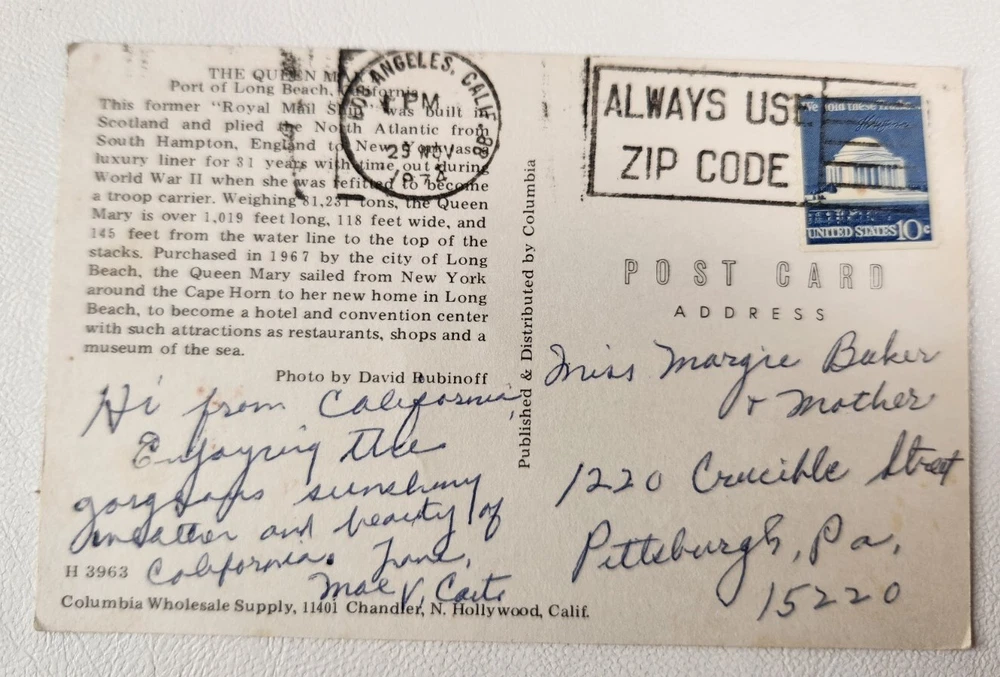 THE QUEEN MARY
Port of Long Beach, California
This former "Royal Mail Ship" was built in
Scotland and plied the North Atlantic from
South Hampton, England to New York as a
luxury liner for 31 years with time out during
World War II when she was refitted to become
a troop carrier. Weighing 81,237 tons, the Queen
Mary is over 1,019 feet long, 118 feet wide, and
145 feet from the water line to the top of the
stacks. Purchased in 1967 by the city of Long
Beach, the Queen Mary sailed from New York
around the Cape Horn to her new home in Long
Beach, to become a hotel and convention center
with such attractions as restaurants, shops and a
museum of the sea.
Photo by David Rubinoff
Hi from California,
Enjoying the
gorgeous sunshiny
weather and beauty of
California.
Mae V.
H 3963
Columbia Wholesale Supply, 11401 Chandler, N. Hollywood, Calif.
Published & Distributed by Columbia
LOS ANGELES, CALIF
PM
29 NOV
ALWAYS USE
ZIP CODE
UNITED STATES 10c
POST CARD
ADDRESS
Miss Margie Baker
& Mother
1220 Crucible Street
Pittsburgh, Pa,
15220